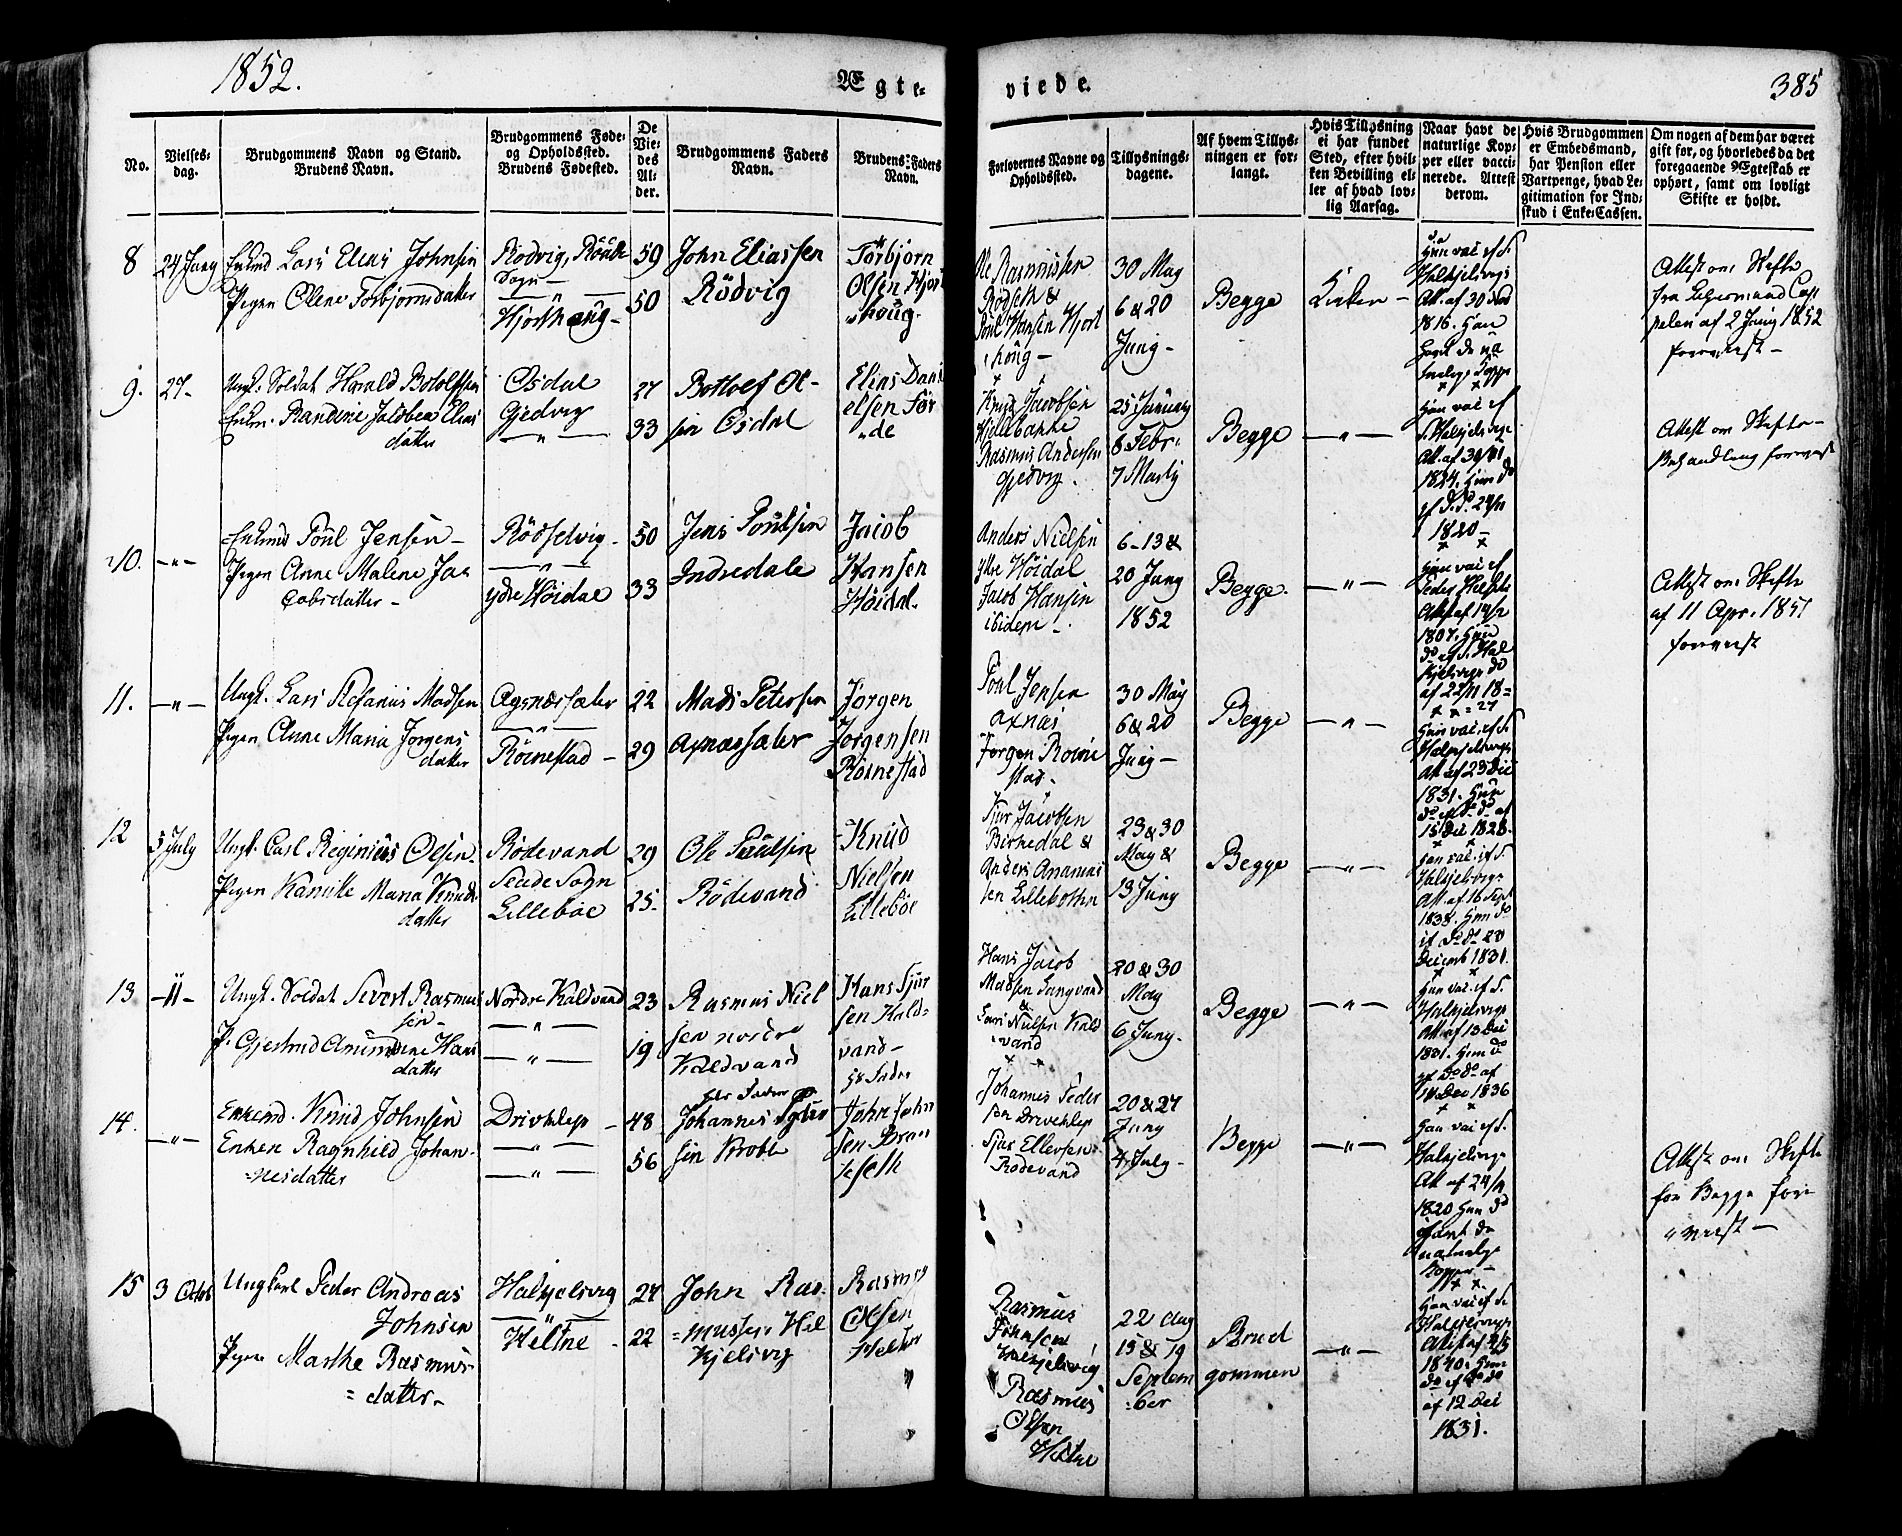 1852.
Ægte-
viede.
385
No.
Vielses-
dag.
Brudgommens Navn og Stand.
Brudens Navn.
Brudgommens Føde-
og Opholdssted.
Brudens Fødested.
De
Vie-
des
Al-
der.
Brudgommens Faders
Navn.
Brudens Faders
Navn.
Forlovernes Navne og
Opholdssted.
Tillysnings-
dagene.
Af hvem Tillys-
ningen er for-
langt.
Hvis Tillysning
ei har fundet
Sted, efter hvil-
ken Bevilling el-
ler af hvad lov-
lig Aarsag.
Naar havt de
naturlige Kop-
per eller vacci-
nerede. Attest
derom.
Hvis Brudgommen
er Embedsmand,
har Pension eller
Vartpenge, hvad Le-
gitimation for Ind-
skud i Enke-Cassen.
Om nogen af dem har været
gift før, og hvorledes da det
foregaaende Ægteskab er
ophørt, samt om lovligt
Skifte er holdt.
8
24 Juny
Enkmd Lars Elias Johnsen
Pigen Oline Torbjørnsdatter
Rødvig, Røvde
Sogn
Hjorthoug
59
50
John Eliassen
Rödvig
Torbjørn
Olsen Hjort
houg.
Ole Rasmussen
Rödseth &
Poul Hansen Hjort
houg
30 May
6 & 20
Juny
Begge
Kirken
Han vac. ef. S.
Halkjelsvigs
Att. af 30
1816. Hun
havt de na
turlige Kopper
Attest om Skifte
fra Lehnsmand Cap
pelen af 2 Juny 1852
foreviist
9.
27
Ungk. Soldat Harald Botolfsen
Enken Randine Jakobea Elias
datter
Osdal
Gjedvig
27
33
Bottolf Ol-
sen Osdal
Elias Dani
elsen Før
de
Knud Jacobsen
Hjellebakke
Rasmus Andersen
Gjedvig.
25 January
8 Febr.
7 Marty
Begge
Han vac. ef
S. Halkjelsvigs
1824. Hun do
1820
Attest om Skifte-
Behandling foreviist
10.
Enkmd Poul Jensen
Pigen Anne Malene Ja
cobsdatter
Rödsetvig
ydre Höidal
50
33
Jens Poulsen
Indredale
Jacob
Hansen
Höidal.
Anders Nielsen
ytre Höidal
Jacob Hansen
ibidem
6-13 &
20 Juny
1852
Begge.
Han vac. ef
1807. Hun
do ef. S. Hal
kjelsvigs do
af 22/11 18=
=27
Attest om Skifte
af 11 Apr. 1851
foreviist
11.
Ungk. Lars Stefanus Madsen
Pigen Anne Maria Jørgens
datter
Axnessæter
Röinestad
22
29
Mads Petersen
Axnæssæter
Jørgen
Jørgensen
Röinestad
Poul Jensen
Axnæs
Jørgen Roine
stad.
30 May
6 & 20
Juny
Begge
Han vac. ef. S.
Halkjelsvigs
Att. af 23 Dec
1831. Hun
do ef. do do af
15 Dec 1828.
12
5 July
Ungk. Carl Reginius Olsen
Pigen Kamille Maria Knuds
datter
Rödevand
Lillebøe
29
25.
Ole Paulsen
Rödevand
Knud
Nielsen
Lillebøe
Siur Jacobsen
Birkedal &
Anders Ananias
sen Lillebotten
23 & 30
May &
13 Juny
Begge
Han vac. ef. S.
Halkjelsvigs
Att. af 16 Sept.
1838. Hun do
Decemb 1831.
13
Ungk. Soldat Sivert Rasmus
sen
P. Gjertrud Amundine Hans
datter
Nordre Kaldvand
23
19
Rasmus Niel
sen nordre
Kaldvand
Hans Sjur
sen Kald=
vand
Hans Jacob
Madsen Langvand
&
Lars Nielsen Kald
vand
20 & 30
May
6 Juny.
Begge
Han vac. ef. S.
Halkjelsvigs
Att. af 13 Dec
1831. Hun do
ef do do af
14 Dec 1836
14.
Enkemd. Knud Johnsen
Enken Ragnhild Johan-
=nesdatter
Drivklep
48
56
Johannes
John John
sen
Johannes Peder
sen Drivklep
Sjur Ellevsen
Rödevand
20 & 27
Juny
4 July
Begge
Han vac. ef. S.
Halkjelsvigs
Att. af 24/9
1820 Hun do
havt de
naturlige
Kopper
Attest om Skifte
for Begge fore
viist
15
3 Octob
Ungkarl Peder Andreas
Johnsen
Pigen Marthe Rasmus-
=datter
Halkjelsvig
Heltne
24
22
John Ras-
=mussen Hal
kjelsvig
Rasmus
Olsen
Heltne
Rasmus
Johnsen
Halkjelsvig
Rasmus
Olsen
Heltne
22 Aug
15 & 19
Septem
ber
Brud
gommen
Han vac ef S.
Halkjelsvigs
1840. Hun
do ef do do
af 12 Dec
1831.